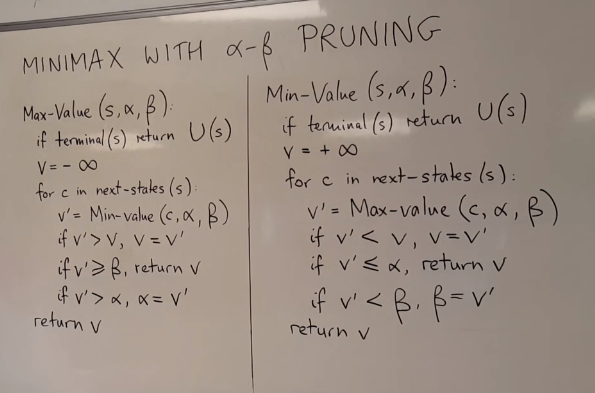 MINIMAX WITH α-β PRUNING
Max-Value (s, α, β):
if terminal(s) return U(s)
v = - ∞
for c in next-states(s):
v' = Min-value (c, α, β)
if v' > v, v = v'
if v' ≥ β, return v
if v' > α, α = v'
return v
Min-Value (s, α, β):
if terminal(s) return U(s)
v = + ∞
for c in next-states (s):
v' = Max-value (c, α, β)
if v' < v, v = v'
if v' ≤ α, return v
if v' < β, β = v'
return v